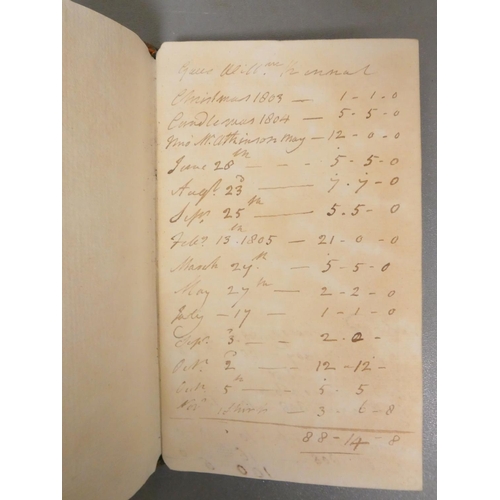 Gave Will.m Kennal
Christmas 1803 — 1 - 1 - 0
Candlemas 1804 — 5 - 5 - 0
Atkinson May — 12 - 0 - 0
June 28th — 5 - 5 - 0
Augt. 23d — 7 - 7 - 0
Sepr. 25th — 5 - 5 - 0
Feby. 13th 1805 — 21 - 0 - 0
March 29th — 5 - 5 - 0
May 27th — 2 - 2 - 0
July 17 — 1 - 1 - 0
Sepr. 3 — 2 - 2 -
Octr. 2d — 12 - 12 -
Octr. 5th — 5 - 5
3 - 6 - 8
88 - 14 - 8